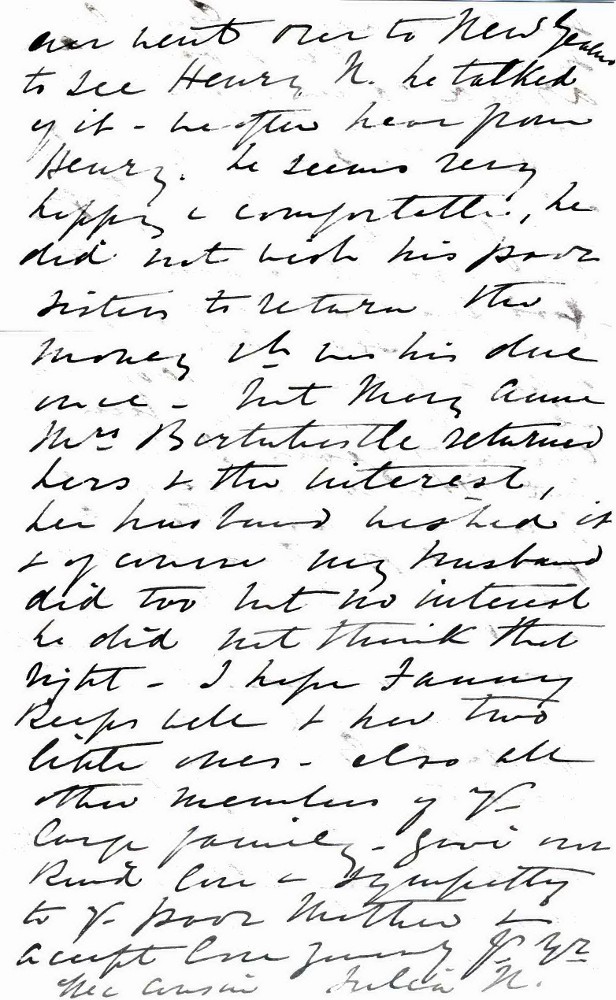 ever went over to New Years
to see Henry N. he talked
of it - we often hear from
Henry. he seems very
happy & comfortable, he
did not wish his poor
sisters to return the
money wh was his due
once - but Mary Anne
Mrs returned
hers & the interest,
her husband wished it
& of course my husband
did too but no interest
he did not think that
right - I hope Fanny
keeps well & her two
little ones - also all
other members of yr
large family - give our
kind love & sympathy
to yr poor Mother &
accept love yr
affec cousin Julia N.